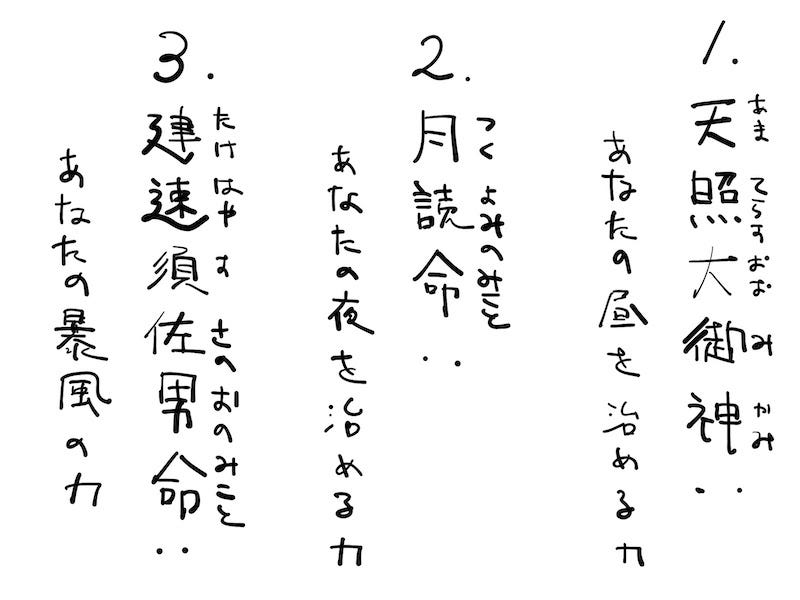 1.
天照大御神:
あまてらすおおみかみ
あなたの昼を治める力
2.
月読命:
つくよみのみこと
あなたの夜を治める力
3.
建速須佐男命:
たけはやすさのおのみこと
あなたの暴風の力